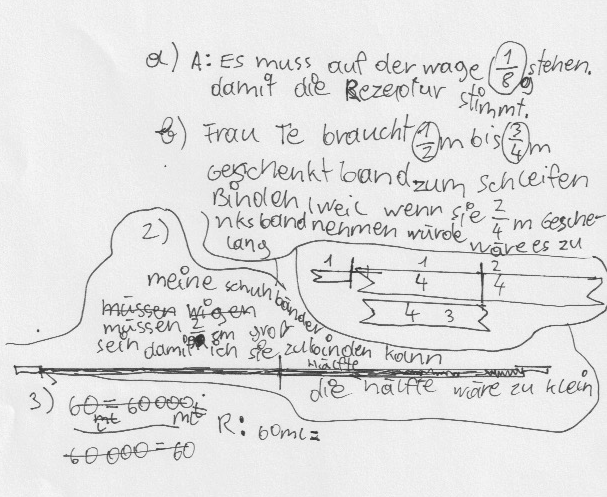 a) A: Es muss auf der wage 1/8 g stehen.
damit die Rezeptur stimmt.
b) Frau Te braucht 1/2 m bis 3/4 m
Geschenktband zum schleifen
Binden weil wenn sie 2/4 m Gesche-
nksband nehmen würde wäre es zu
lang
1 1 2
4 4
4 3
2)
meine schuhbänder
müssen wigen
müssen 2 m groß
sein damit ich sie zubinden kann
hälfte
die hälfte wäre zu klein
3) 60 = 60000
ml
R: 60ml =
60 000 = 60